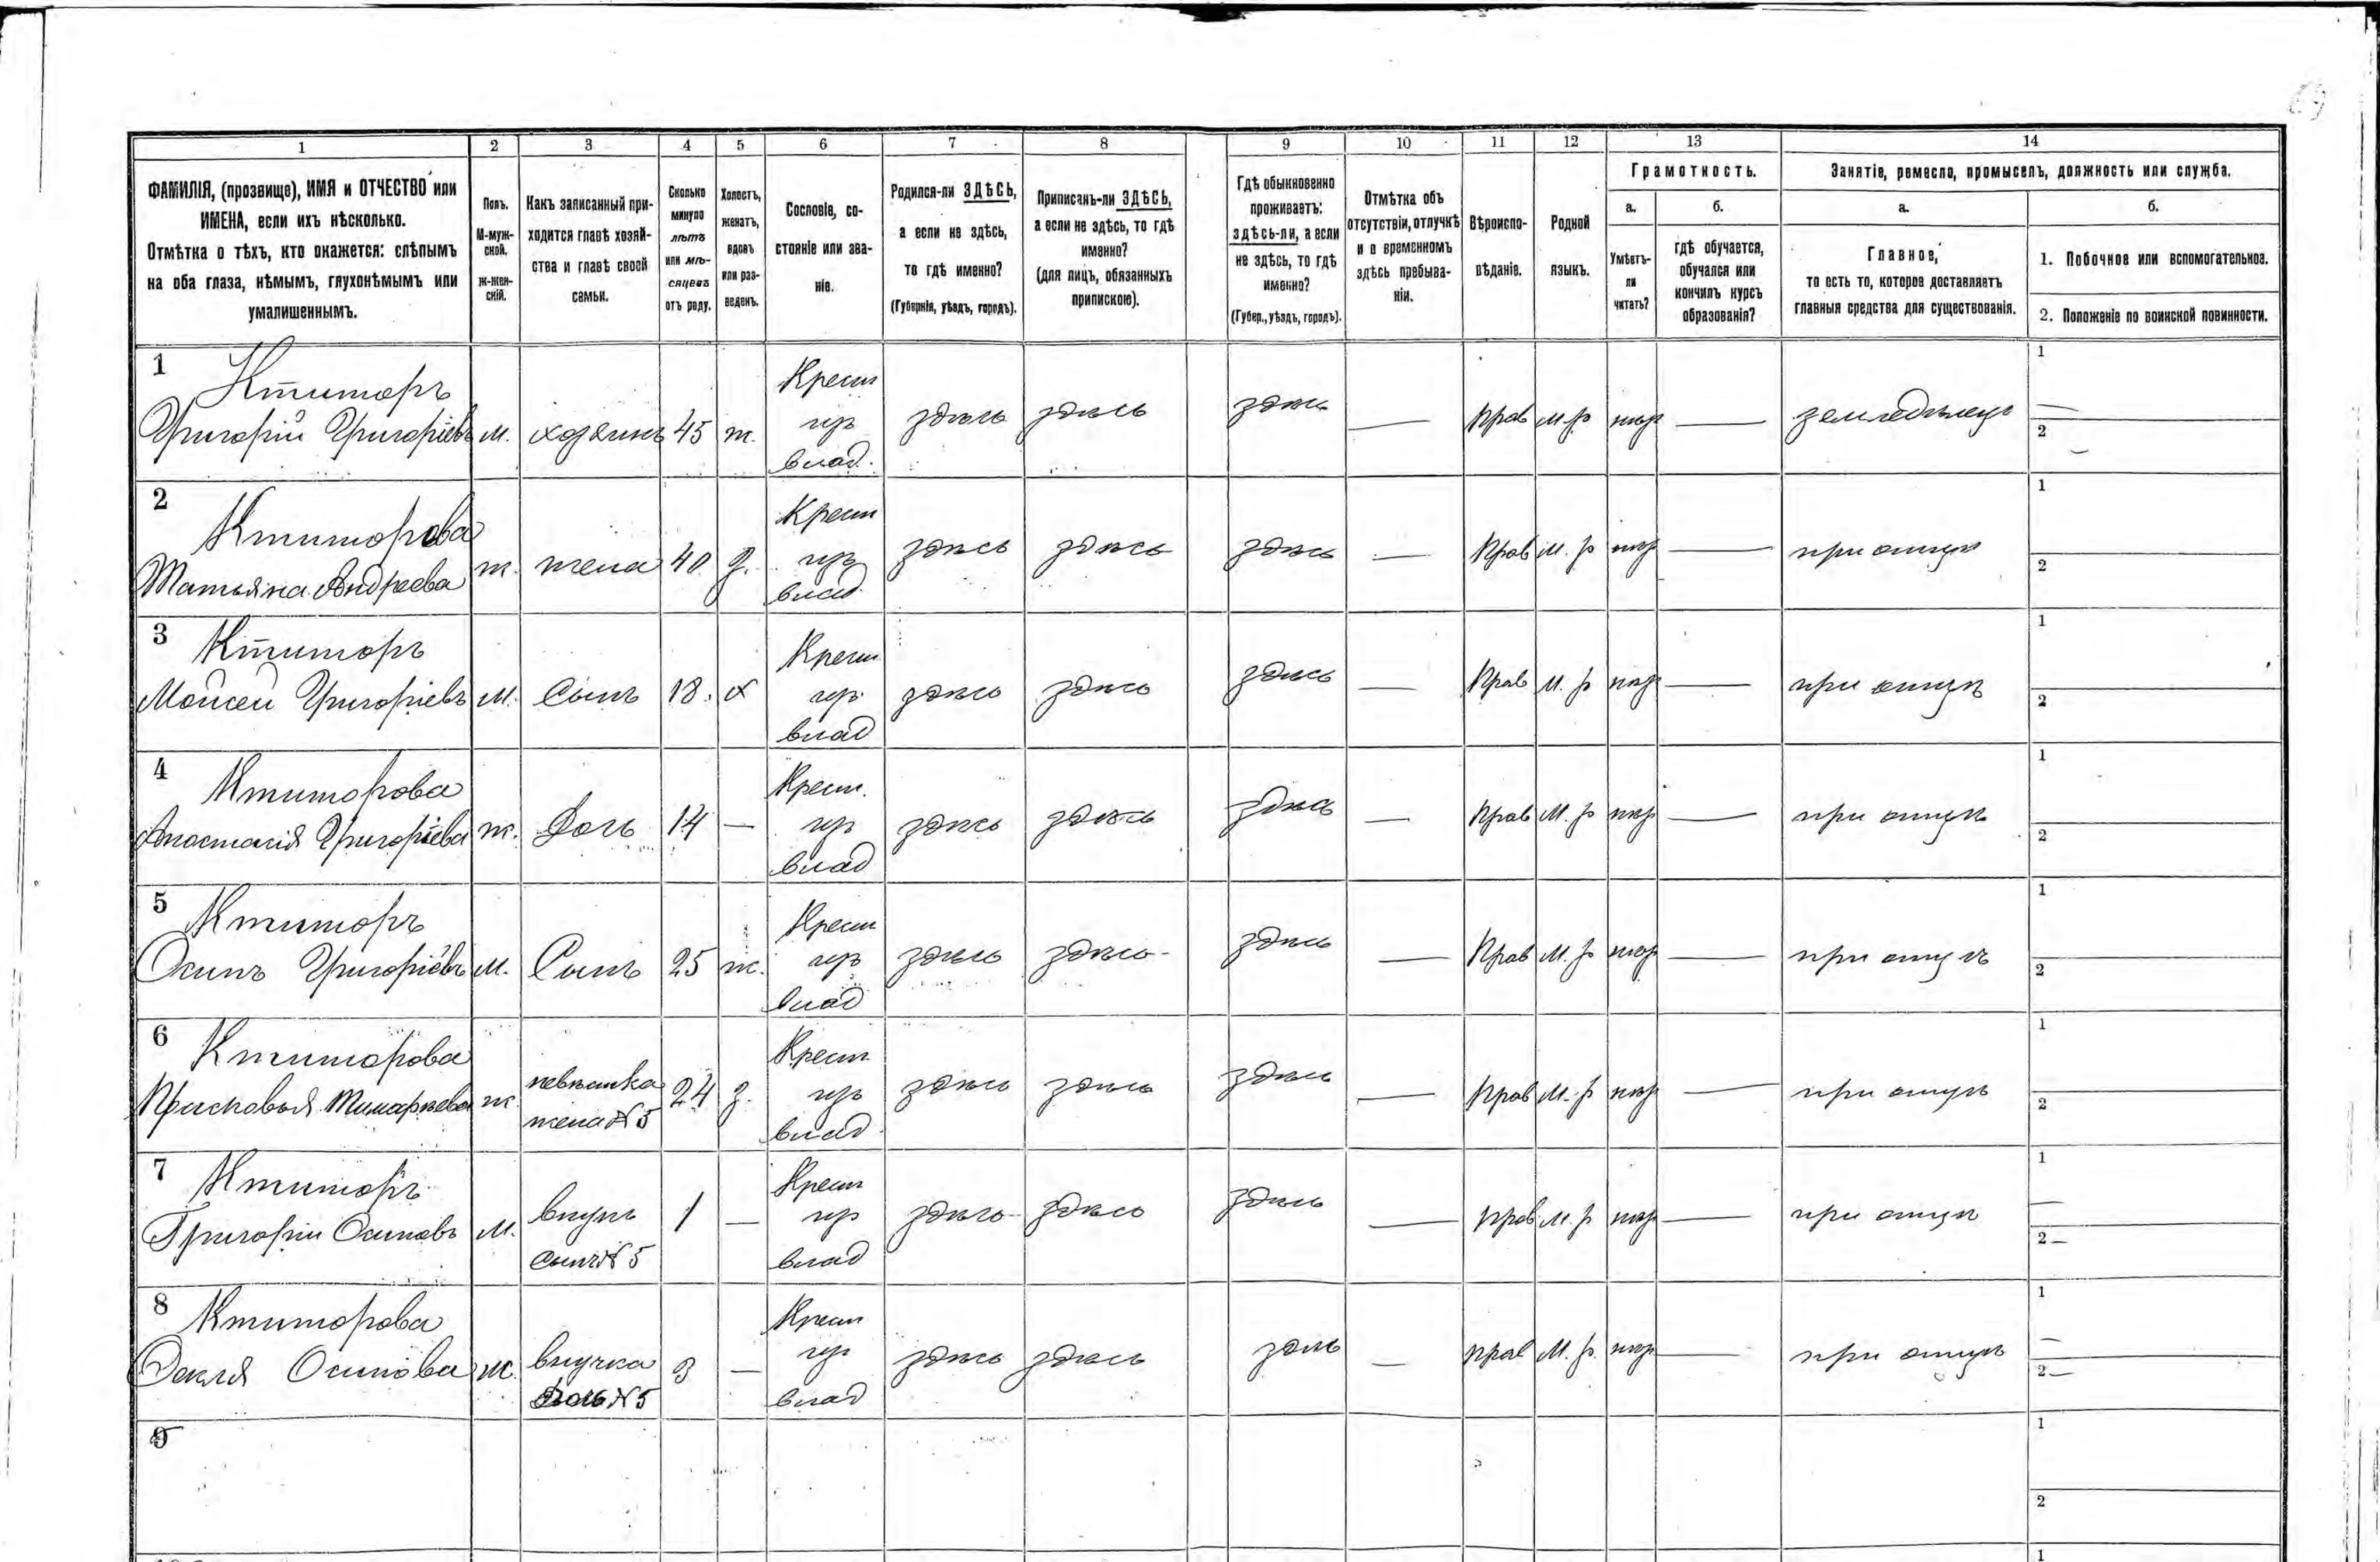 1 2 3 4 5 6 7 8 9 10 11 12 13 14
ФАМИЛІЯ, (прозвище), ИМЯ и ОТЧЕСТВО или
ИМЕНА, если ихъ нѣсколько.
Отмѣтка о тѣхъ, кто окажется: слѣпымъ
на оба глаза, нѣмымъ, глухонѣмымъ или
умалишеннымъ.
Полъ.
М-муж-
ской.
Ж-жен-
скій.
Какъ записанный при-
ходится главѣ хозяй-
ства и главѣ своей
семьи.
Сколько
минуло
лѣтъ
или мѣ-
сяцевъ
отъ роду.
Холостъ,
женатъ,
вдовъ
или раз-
веденъ.
Сословіе, со-
стояніе или зва-
ніе.
Родился-ли ЗДѢСЬ,
а если не здѣсь,
то гдѣ именно?
(Губернія, уѣздъ, городъ).
Приписанъ-ли ЗДѢСЬ,
а если не здѣсь, то гдѣ
именно?
(для лицъ, обязанныхъ
припискою).
Гдѣ обыкновенно
проживаетъ:
здѣсь-ли, а если
не здѣсь, то гдѣ
именно?
(Губер., уѣздъ, городъ).
Отмѣтка объ
отсутствіи, отлучкѣ
и о временномъ
здѣсь пребыва-
ніи.
Вѣроиспо-
вѣданіе.
Родной
языкъ.
Грамотность.
а.
Умѣетъ-
ли
читать?
б.
гдѣ обучается,
обучался или
кончилъ курсъ
образованія?
Занятіе, ремесло, промыселъ, должность или служба.
а.
Главное,
то есть то, которое доставляетъ
главныя средства для существованія.
б.
1. Побочное или вспомогательное.
2. Положеніе по воинской повинности.
1 Ктиторъ
Григорій Григоріевъ м. хозяинъ 45 ж. Крест здѣсь здѣсь здѣсь — Прав м.р — земледѣлецъ 1 —
влад. 2 —
2 Ктиторова
Татьяна Андреева ж. жена 40 з. Крест здѣсь здѣсь здѣсь — Прав м.р — при отцѣ 1
влад. 2
3 Ктиторъ
Мойсей Григоріевъ м. Сынъ 18. х Крест здѣсь здѣсь здѣсь — Прав м.р — при отцѣ 1
влад 2
4 Ктиторова
Анастасія Григоріева ж. Дочь 14 — Крест. здѣсь здѣсь здѣсь — Прав м.р — при отцѣ 1
влад 2
5 Ктиторъ
Осипъ Григоріевъ м. Сынъ 25 ж. Крест здѣсь здѣсь здѣсь — Прав м.р — при отцѣ 1
влад 2
6 Ктиторова
Прасковья ж. невѣстка 24 з. Крест здѣсь здѣсь здѣсь — Прав м.р — при отцѣ 1
жена N 5 влад 2
7 Ктиторъ
Григорій Осиповъ м. внукъ 1 — Крест здѣсь здѣсь здѣсь — Прав м.р — при отцѣ 1 —
сынъ N 5 влад 2 —
8 Ктиторова
Фекля Осипова ж. внучка 3 — Крест здѣсь здѣсь здѣсь — Прав м.р. — при отцѣ 1 —
дочь N 5 влад 2 —
9 1
2
1